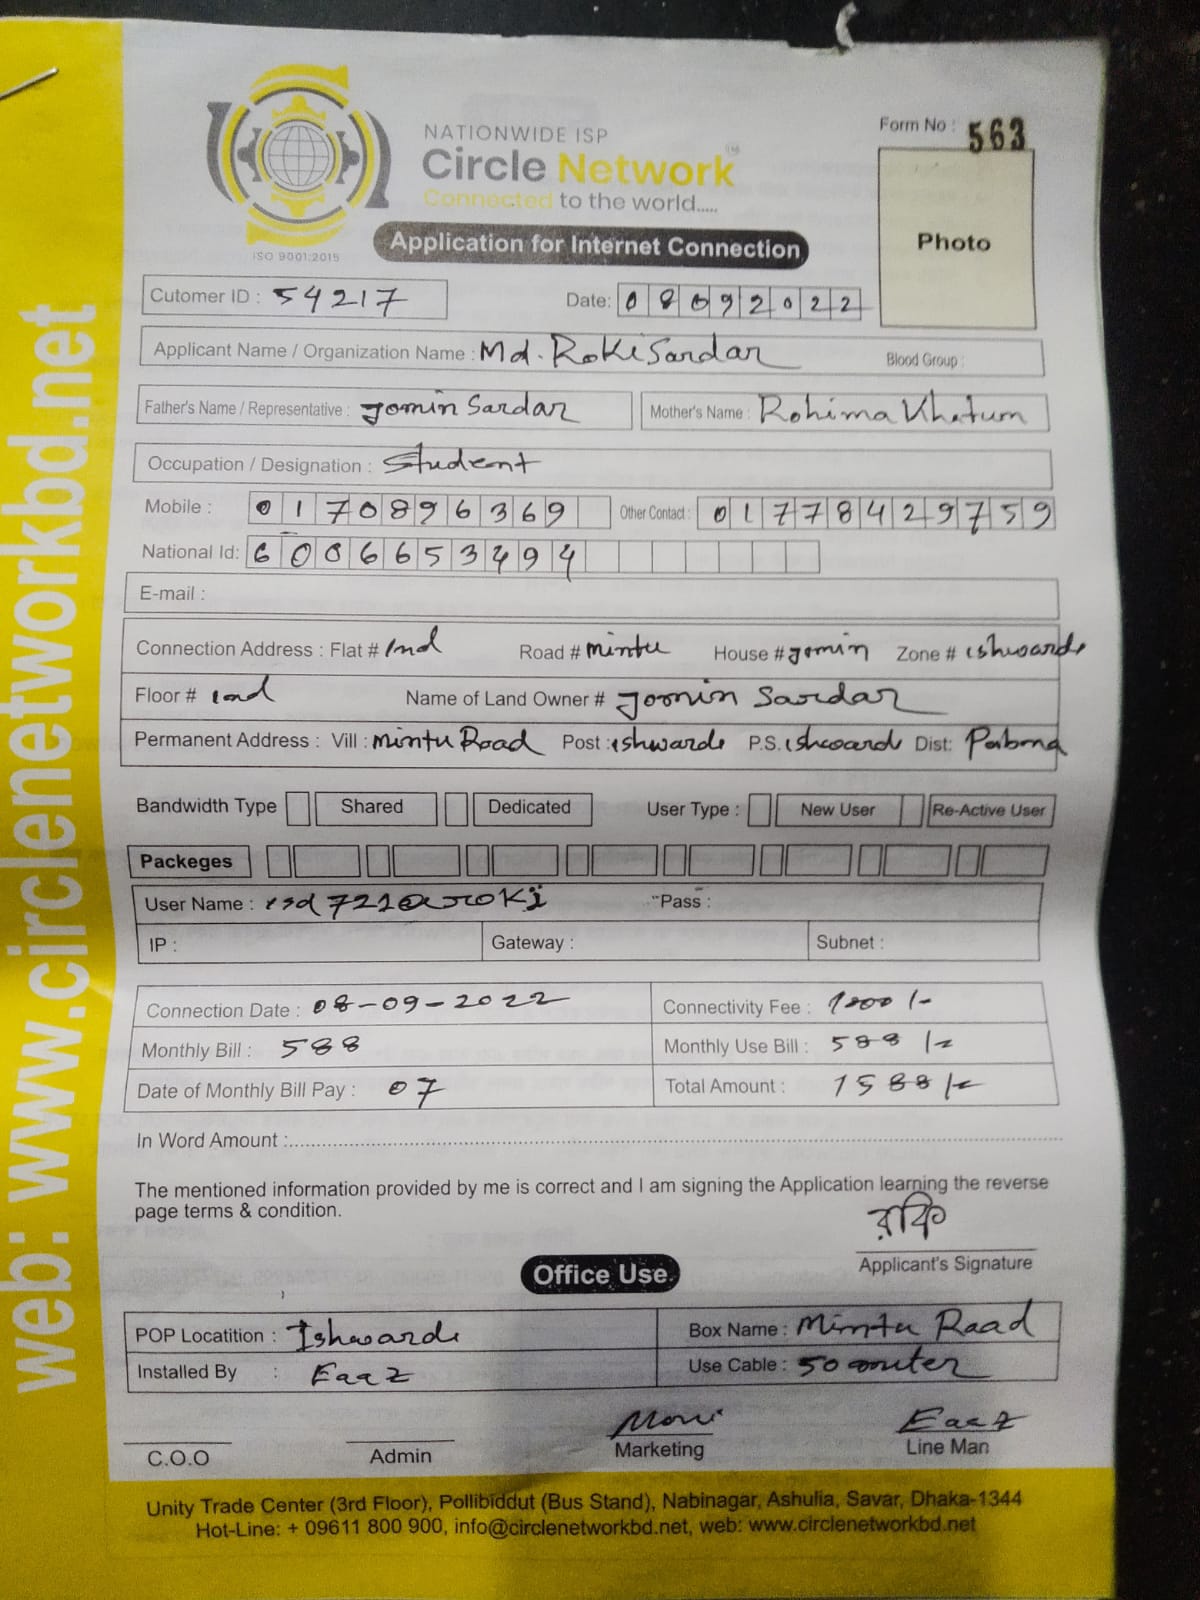 NATIONWIDE ISP
Circle Network
Connected to the world.....
ISO 9001:2015
Application for Internet Connection
Form No : 563
Photo
Cutomer ID : 54217 Date: 08092022
Applicant Name / Organization Name : Md. Roki Sardar Blood Group :
Father's Name / Representative : Jomin Sardar Mother's Name : Rohima Khatum
Occupation / Designation : Student
Mobile : 0170896369 Other Contact : 01778429759
National Id: 6006653494
E-mail :
Connection Address : Flat # 1nd Road # mintu House # jomin Zone # ishwardi
Floor # 1nd Name of Land Owner # Jomin Sardar
Permanent Address : Vill : mintu Road Post : ishwardi P.S. ishward Dist: Pabna
Bandwidth Type Shared Dedicated User Type : New User Re-Active User
Packeges
User Name : isd721@roki Pass :
IP : Gateway : Subnet :
Connection Date : 08-09-2022 Connectivity Fee : 1000/-
Monthly Bill : 588 Monthly Use Bill : 588/=
Date of Monthly Bill Pay : 07 Total Amount : 1588/=
In Word Amount :
The mentioned information provided by me is correct and I am signing the Application learning the reverse
page terms & condition.
রকি
Applicant's Signature
Office Use
POP Locatition : Ishwardi Box Name : Mintu Raad
Installed By : Eaaz Use Cable : 50 miter
Moni Eaaz
C.O.O Admin Marketing Line Man
Unity Trade Center (3rd Floor), Pollibiddut (Bus Stand), Nabinagar, Ashulia, Savar, Dhaka-1344
Hot-Line: + 09611 800 900, info@circlenetworkbd.net, web: www.circlenetworkbd.net
web: www.circlenetworkbd.net